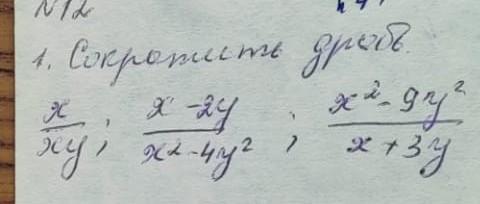 №12
1. Сократить дробь.
x/xy; (x-2y)/(x²-4y²); (x²-9y²)/(x+3y)